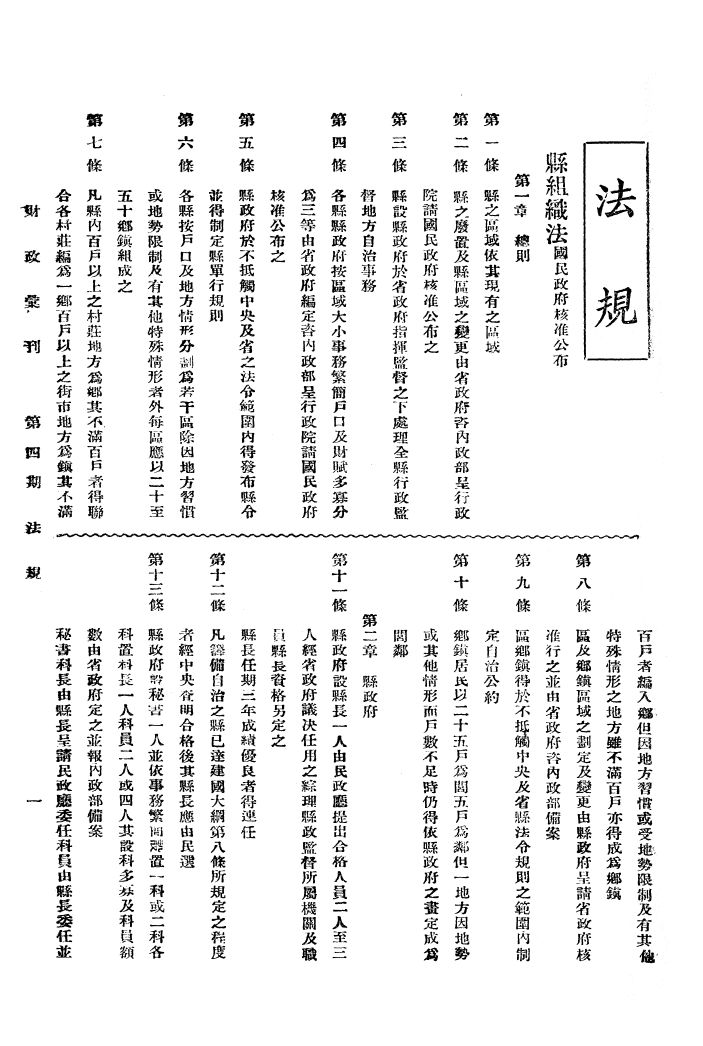 法規
縣組織法國民政府核准公布
第一章　總則
第一條　縣之區域依其現有之區域
第二條　縣之廢置及縣區域之變更由省政府咨內政部呈行政
院請國民政府核准公布之
第三條　縣設縣政府於省政府指揮監督之下處理全縣行政監
督地方自治事務
第四條　各縣縣政府按區域大小事務繁簡戶口及財賦多寡分
爲三等由省政府編定咨內政部呈行政院請國民政府
核准公布之
第五條　縣政府於不抵觸中央及省之法令範圍內得發布縣令
並得制定縣單行規則
第六條　各縣按戶口及地方情形分劃爲若干區除因地方習慣
或地勢限制及有其他特殊情形者外每區應以二十至
五十鄉鎮組成之
第七條　凡縣內百戶以上之村莊地方爲鄉其不滿百戶者得聯
合各村莊編爲一鄉百戶以上之街市地方爲鎮其不滿
百戶者編入鄉但因地方習慣或受地勢限制及有其他
特殊情形之地方雖不滿百戶亦得成爲鄉鎮
第八條　區及鄉鎮區域之劃定及變更由縣政府呈請省政府核
准行之並由省政府咨內政部備案
第九條　區鄉鎮得於不抵觸中央及省縣法令規則之範圍內制
定自治公約
第十條　鄉鎮居民以二十五戶爲閭五戶爲鄰但一地方因地勢
或其他情形而戶數不足時仍得依縣政府之畫定成爲
閭鄰
第二章　縣政府
第十一條　縣政府設縣長一人由民政廳提出合格人員二人至三
人經省政府議決任用之綜理縣政監督所屬機關及職
員縣長資格另定之
縣長任期三年成績優良者得連任
第十二條　凡籌備自治之縣已達建國大綱第八條所規定之程度
者經中央查明合格後其縣長應由民選
第十三條　縣政府設秘書一人並依事務繁簡設置一科或二科各
科置科長一人科員二人或四人其設科多寡及科員額
數由省政府定之並報內政部備案
秘書科長由縣長呈請民政廳委任科員由縣長委任並
財政彙刊　第四期　法規　一